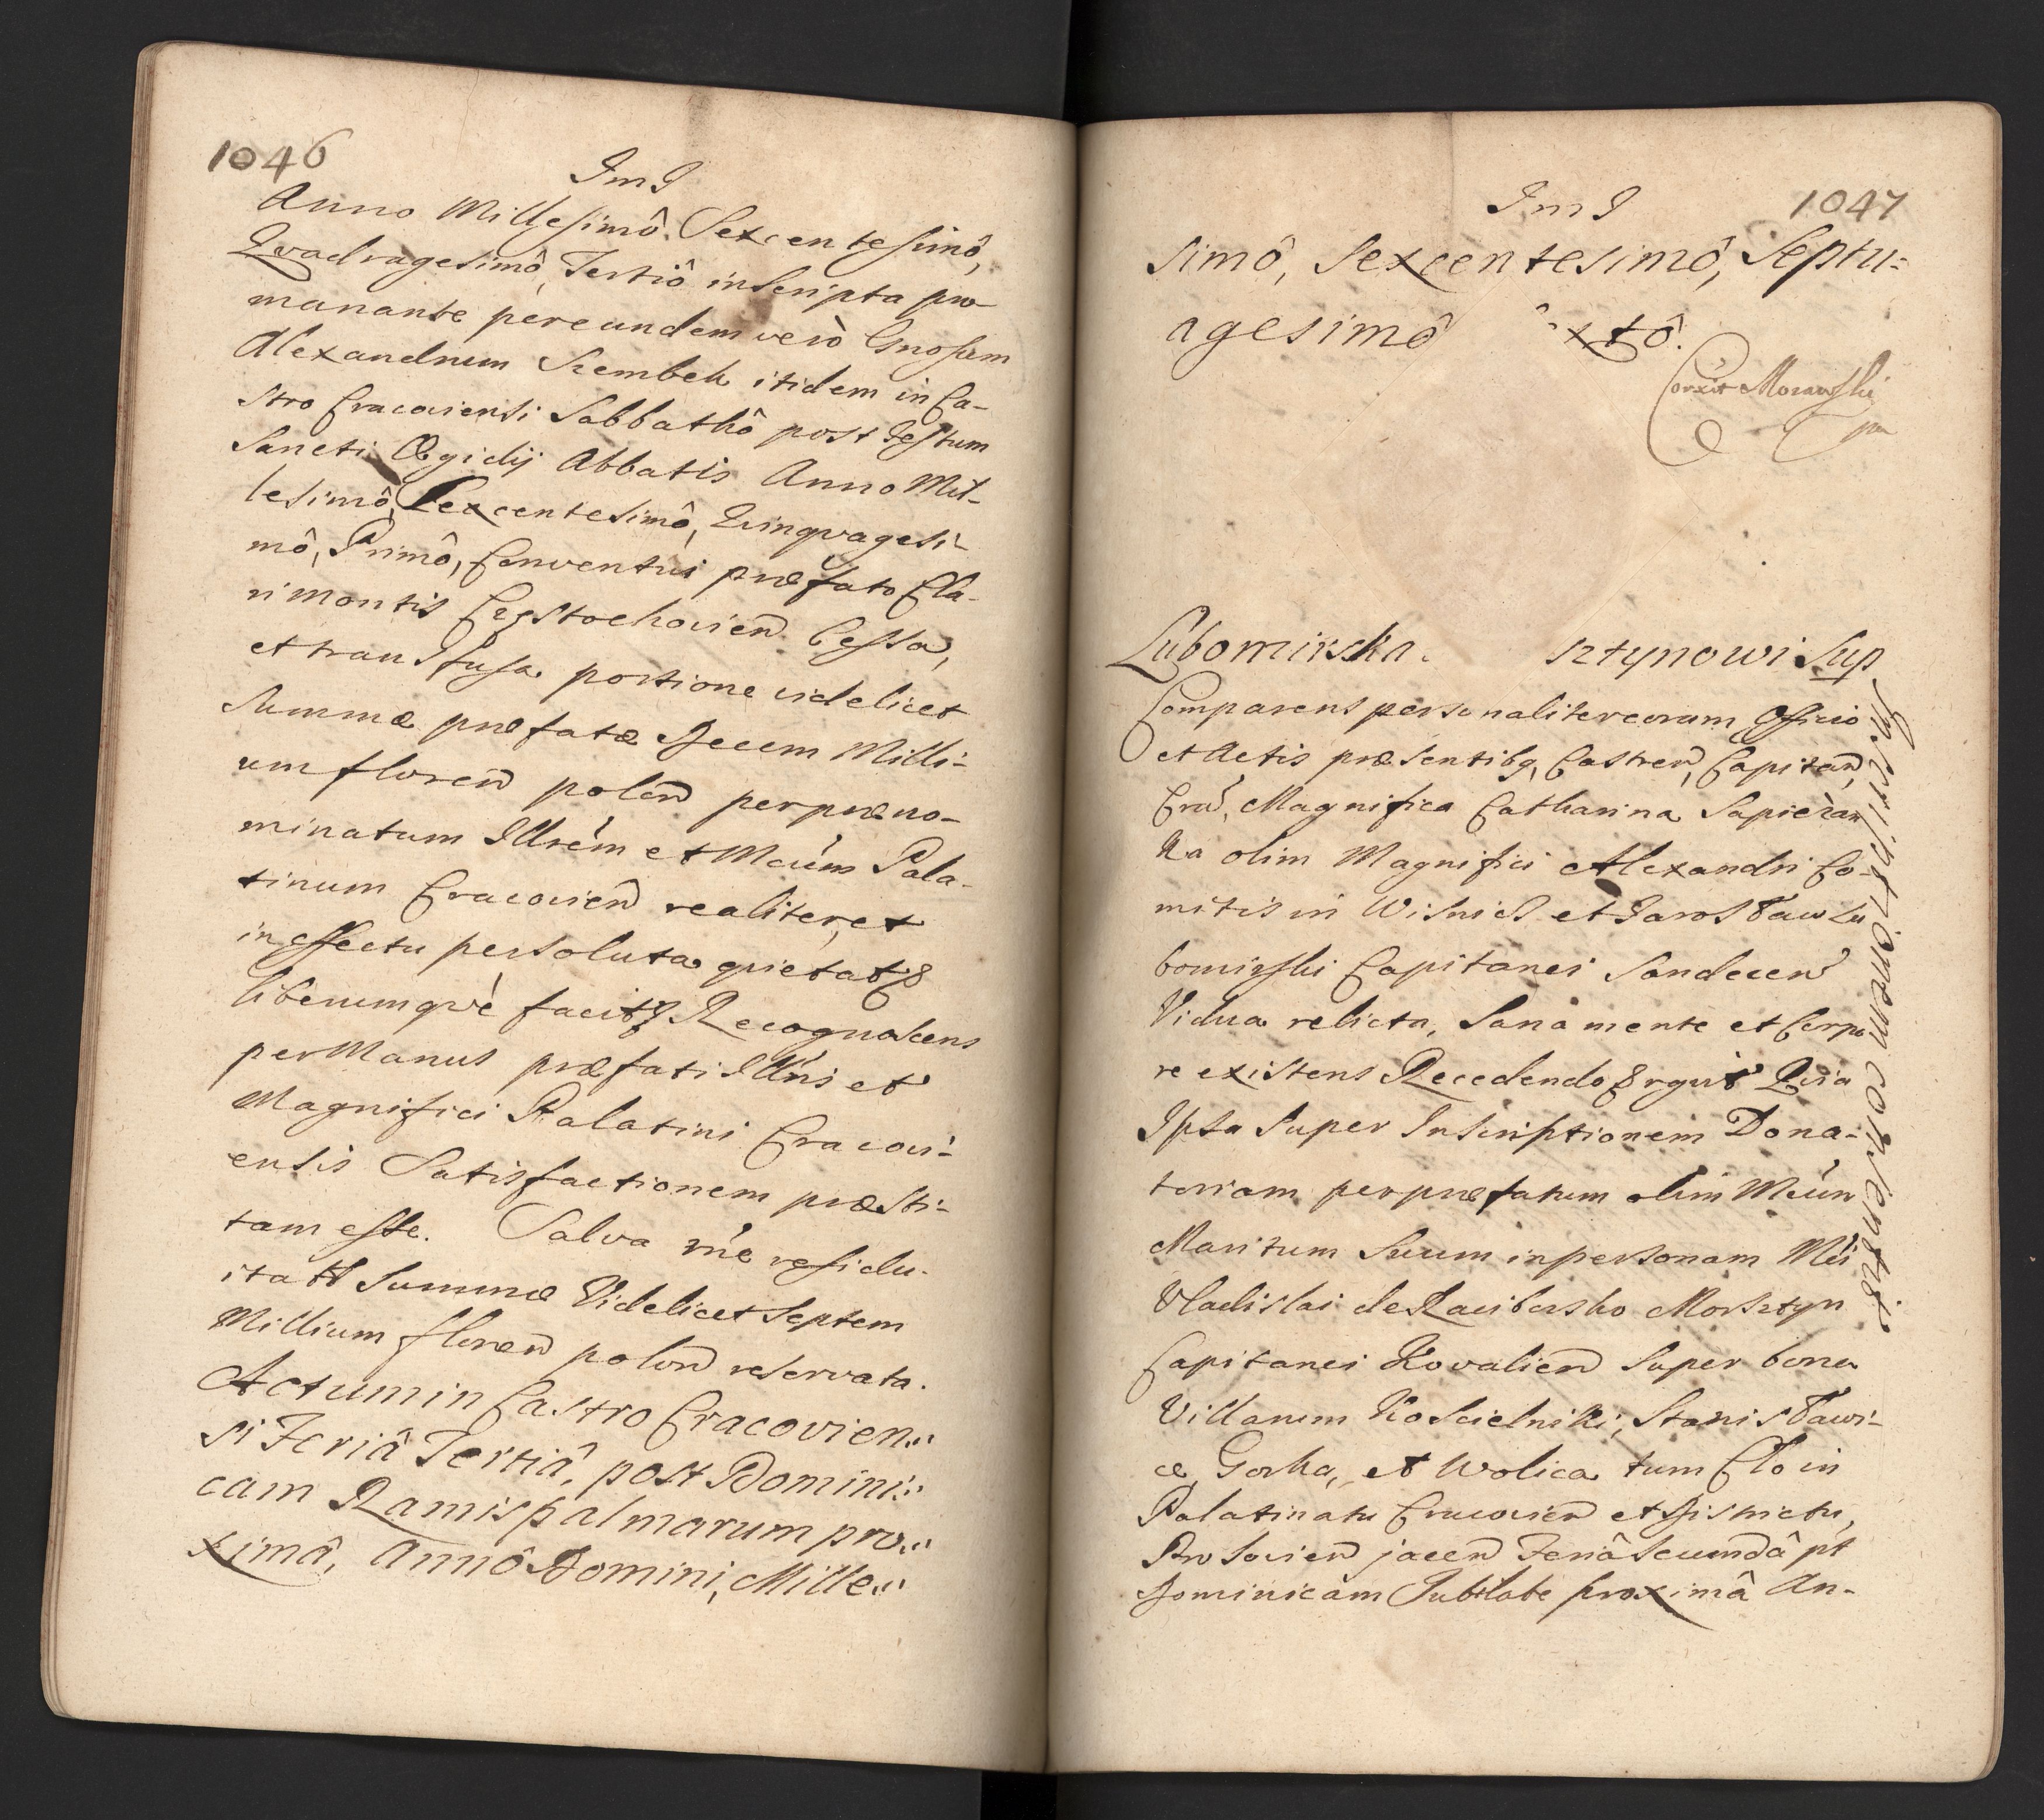 1046
ImI
Anno Millesimô Sexcentesimô,
Qvadragesimô, Tertiô inscripta pro
manante per eundem verò Gnosum
Alexandrum Szembek itidem in Ca-
stro Cracoviensi Sabbathô post Festum
Sancti Ægidij Abbatis Anno Mil-
lesimô, Sexcentesimô, Qvinqvagesi-
mô, Primô, Conventui præfato Cla-
rimontis Częstochovien Cessa,
et transfusa portione videlicet
Summæ præfatæ Decem Milli-
um floren polon per præno-
minatum Illrem et Mcum Pala-
tinum Cracovien realiter, et
in effectu persoluta qvietat &
liberumqvè facit & Recognoscens
per Manus præfati Illris et
Magnifici Palatini Cracovi-
ensis Satisfactionem præsti-
tam esse. Salva rñe residu-
itatt Summæ Videlicet Septem
Millium floren polon reservata.
Actum in Castro Cracovien
si Feriâ Tertiâ, post Domini
cam Ramispalmarum pro
ximâ, Annô Domini, Mille
ImI 1047
simô, Sexcentesimô, Septu-
agesimô xtô.
Corxit Morawski
Lubomirska sztynowi Sup
inscriptionem consensit
Comparens personaliter coram Officio
et Actis præsentibq, Castren, Capitan,
Cra, Magnifica Catharina Sapieżan
ka olim Magnifici Alexandri Co-
mitis in Wisnicz et Jarosław Lu
bomirski Capitanei Sandecen
Vidua relicta, Sana mente et Corpo
re existens Recedendo & rgut Qvia
Ipsa Super Inscriptionem Dona-
toriam per præfatum olim Mcum
Maritum Suum in personam Mci
Vladislai de Raciborsko Morsztyn
Capitanei Kovalien Super bona
Villarum Koscielniki, Stanisławi-
ce, Gorka, et Wolica tum Cło in
Palatinatu Cracovien et Districtu,
Prosovien jacen Feriâ Secundâ pt
Dominicam Jubilate proximâ An-